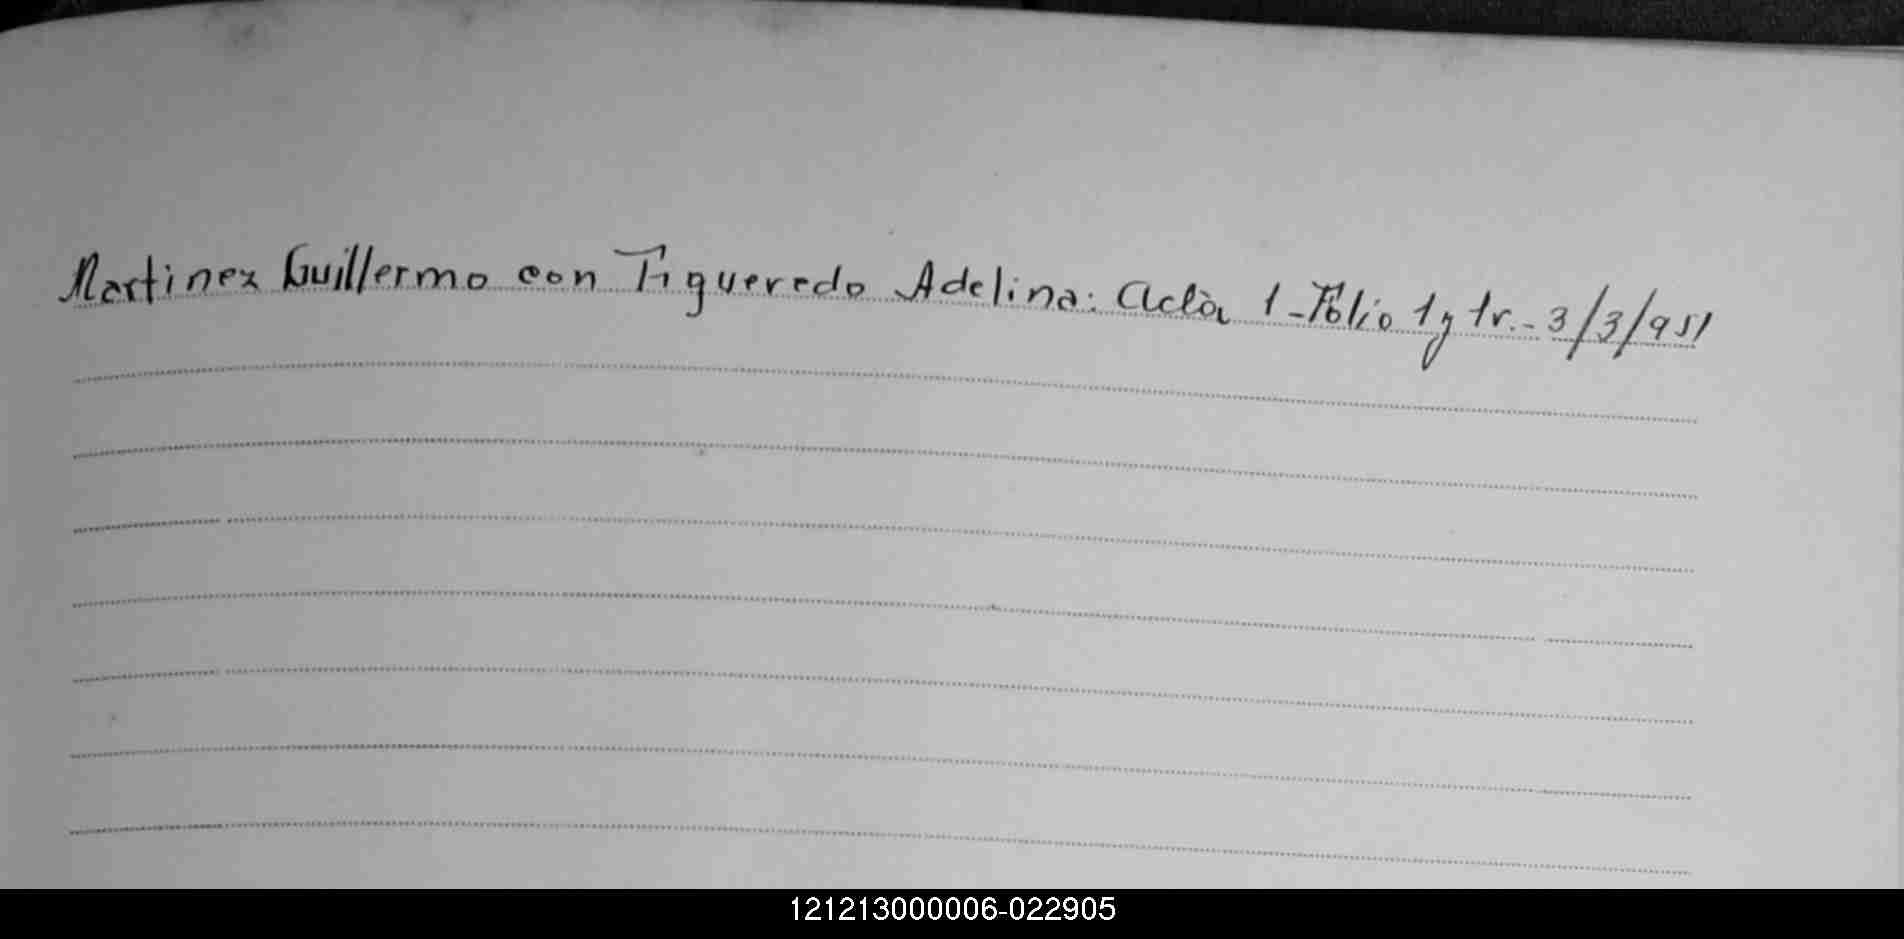 Martinez Guillermo con Figueredo Adelina: Acta 1-Folio 1 y 1v.- 3/3/951
121213000006-022905